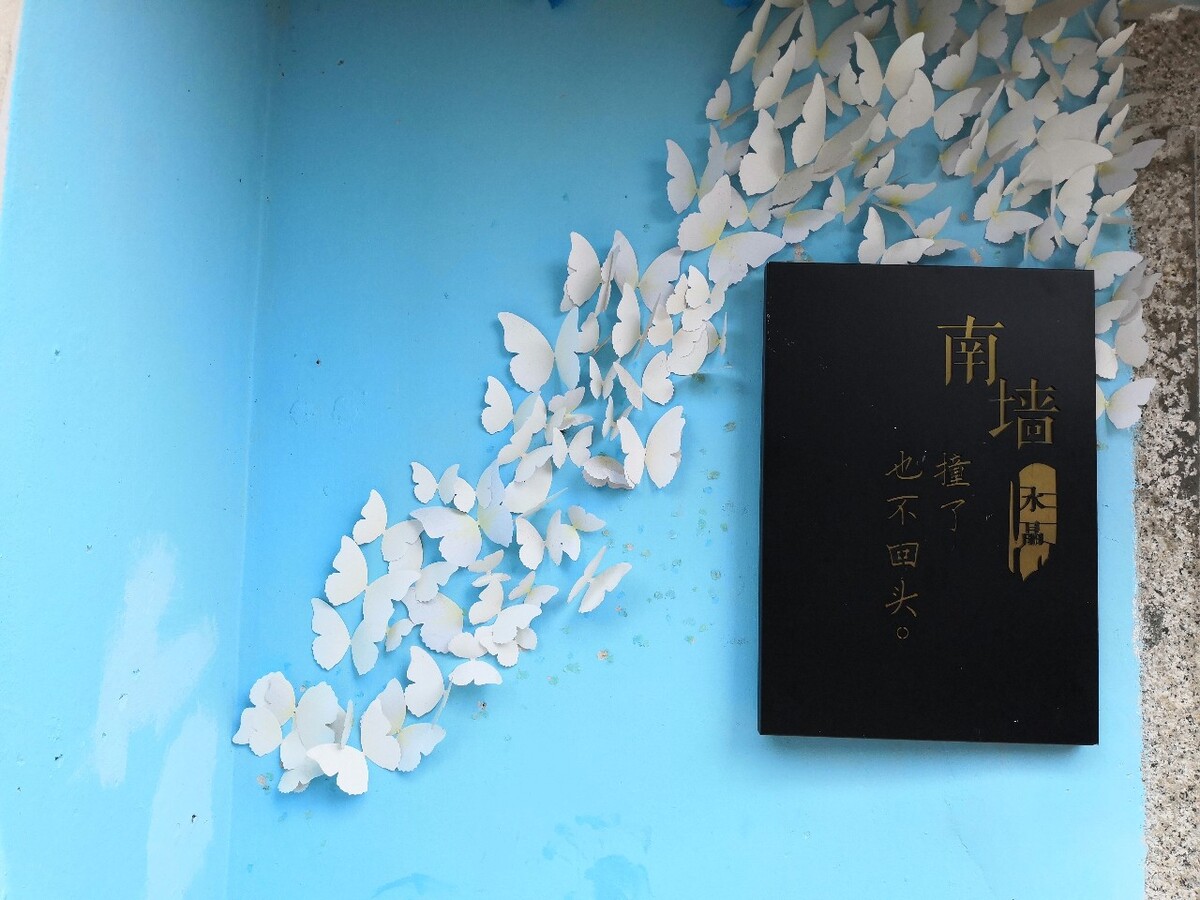 南墙
水晶
撞了
也不回头。